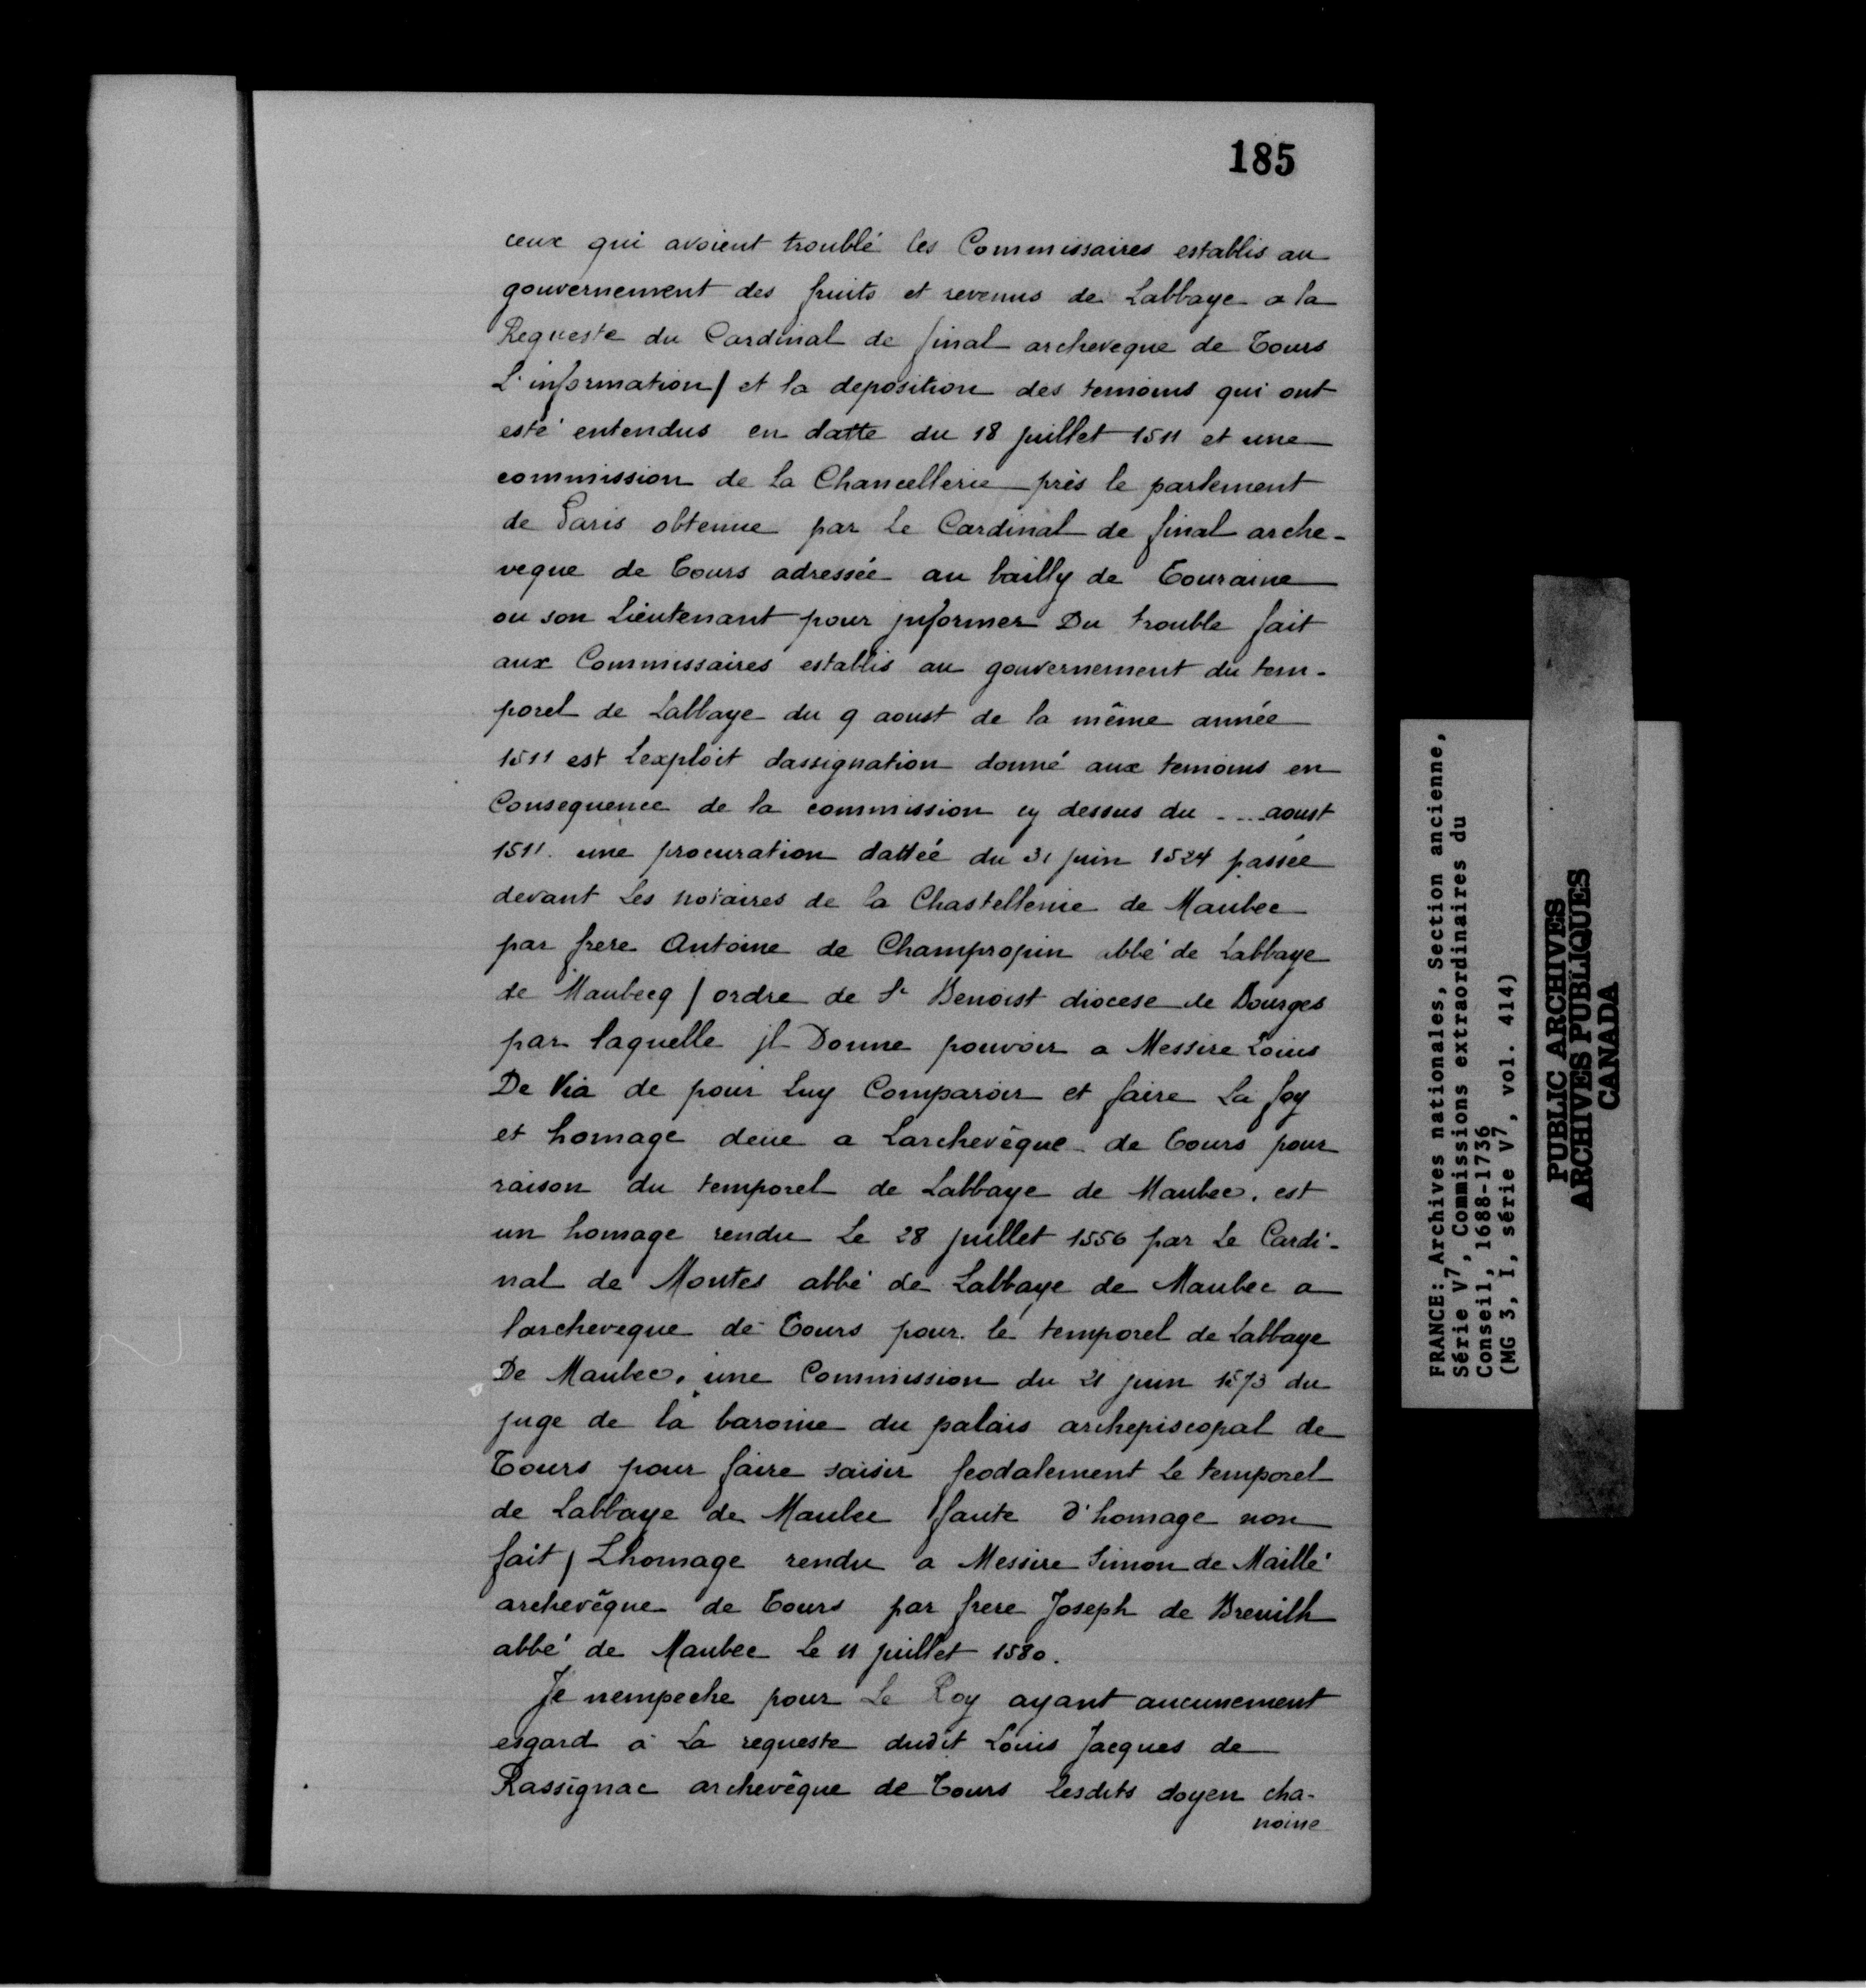 185
ceux qui avoient troublé les Commissaires establis au
gouvernement des fruits et revenus de Labbaye a la
Requeste du Cardinal de final archeveque de Tours
L'information / et la deposition des temoins qui ont
esté entendus en datte du 18 juillet 1511 et une
commission de La Chancellerie près le parlement
de Paris obtenue par Le Cardinal de final arche-
veque de Tours adressée au bailly de Touraine
ou son Lieutenant pour jnformer Du trouble fait
aux Commissaires establis au gouvernement du tem-
porel de Labbaye du 9 aoust de la même année
1511 est Lexploit dassignation donné aux temoins en
Consequence de la commission cy dessus du .... aoust
1511. une procuration dattée du 31 juin 1524 passée
devant Les notaires de la Chastellenie de Maubec
par frere Antoine de Champropin abbé de Labbaye
de Maubecq / ordre de St Benoist diocese de Bourges
par laquelle jl Donne pouvoir a Messire Louis
De Via de pour Luy Comparoir et faire La foy
et homage deue a Larchevêque de Tours pour
raison du temporel de Labbaye de Maubec. est
un homage rendu Le 28 juillet 1556 par Le Cardi-
nal de Montes abbé de Labbaye de Maubec a
larcheveque de Tours pour le temporel de Labbaye
De Maubec. une Commission du 21 juin 1573 du
juge de la baronie du palais archepiscopal de
Tours pour faire saisir feodalement Le temporel
de Labbaye de Maubec / faute d'homage non
fait / Lhomage rendu a Messire Simon de Maillé
archevêque de Tours par frere Joseph de Breuilh
abbé de Maubec Le 11 juillet 1580.
Je nempeche pour Le Roy ayant aucunement
esgard à La requeste dudit Louis Jacques de
Rassignac archevêque de Tours lesdits doyen cha-
noine
FRANCE: Archives nationales, Section ancienne,
Série V7, Commissions extraordinaires du
Conseil, 1688-1736
(MG 3, I, série V7, vol. 414)
PUBLIC ARCHIVES
ARCHIVES PUBLIQUES
CANADA